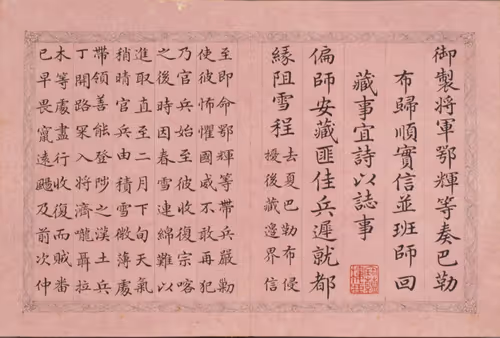 御製將軍鄂輝等奏巴勒
布歸順實信並班師回
藏事宜詩以誌事
偏師安藏匪佳兵遲就都
緣阻雪程去夏巴勒布侵
擾後藏邊界信
至即命鄂輝等帶兵嚴勒
使彼怖懼國威不敢再犯
乃官兵始至彼收復宗喀
之後時因春雪連綿難以
進取直至二月下旬天氣
稍晴官兵由積雪微薄處
帶領善能登陟之漢土兵
丁開路果入將濟嚨聶拉
木等處盡行收復而賊番
已早畏竄遠颺及前次仲